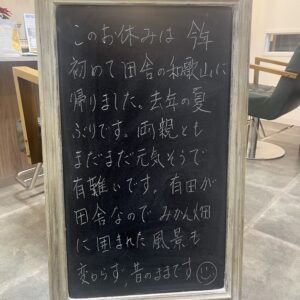 このお休みは 今年
初めて田舎の和歌山に
帰りました。去年の夏
ぶりです。両親とも
まだまだ元気そうで
有難いです。有田が
田舎なので みかん畑
に囲まれた風景も
変わらず、昔のままです